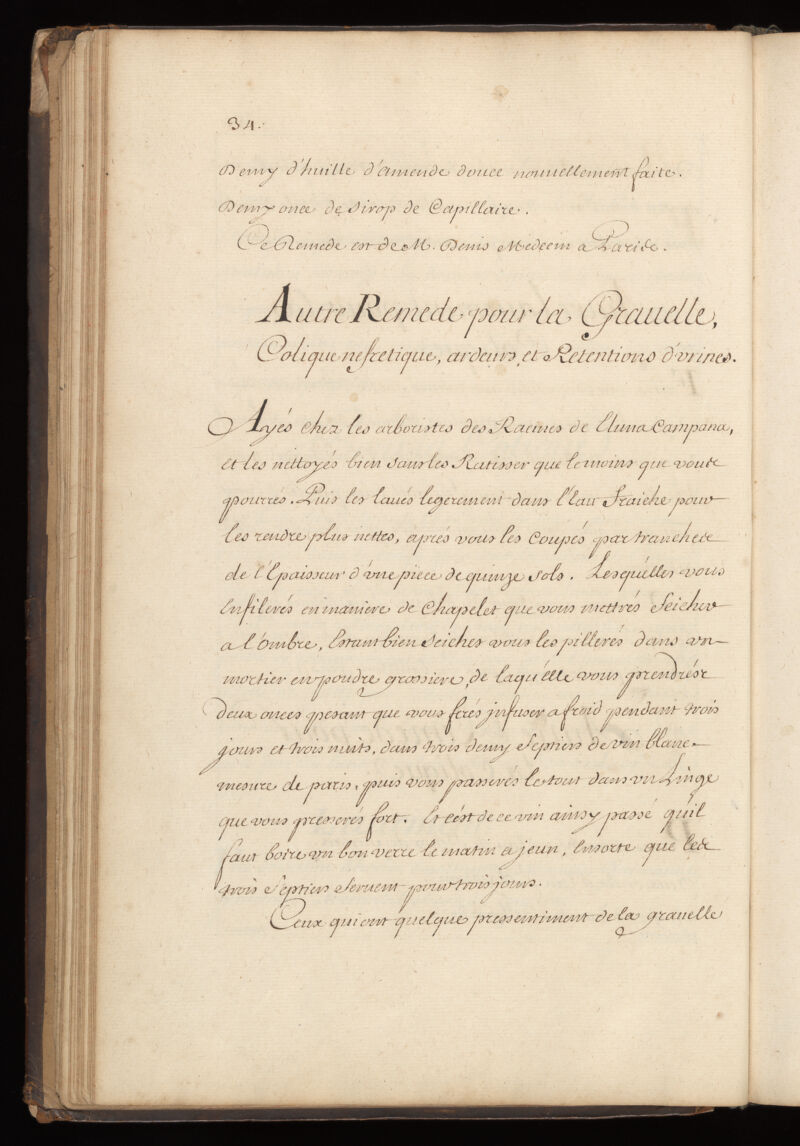 34.
Demy d'huille d'amende douce nouuellement faite.
Demy once de sirop de Capillaire.
Ce Remede est de M. Denis Medecin a Paris.
Autre Remede pour la Grauelle,
Colique nefretique, ardeurs, et Retentions d'vrines.
Ayés chez les arboristes des Racines de Eluna Campana,
et les nettoyés bien sans les Ratisser que le moins que vous
pourrés. Puis les laués legerement dans l'Eau fraiche pour
les rendre plus nettes, aprés vous les Coupés par tranches
de l'Epaisseur d'vne piece de quinze sols. Lesquelles vous
Enfilerés en maniere de Chapelet que vous mettrés Seicher
a l'ombre, Estant bien Seiches vous les pillerés dans vn
mortier en poudre grossiere, de laqu'elle vous prendrés
Deux onces pesant que vous ferés jnfuser a froid pendant trois
jours et trois nuits, dans trois demy Septiers de vin blanc
mesure de paris, puis vous passerés le tout dans vn Linge
que vous presserés fort. Et c'est de ce vin ainsy passé qu'il
faut boire vn bon verre le matin a jeun, Ensorte que les
trois Septiers Seruent pour trois jours.
Ceux qui ont quelque pressentiment de la grauelle